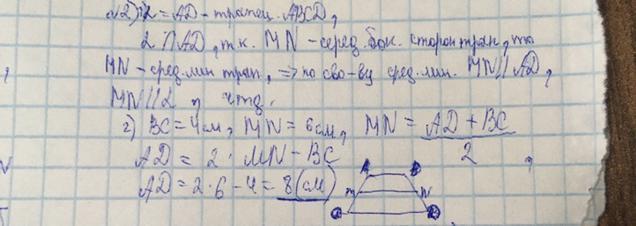 AD - трапец. ABCD,
2 ∩ AD, т.к. MN - серед. бок. сторон трап, то
MN - сред. лин трап, => по св-ву сред. лин. MN || AD,
MN || 2, чтд.
2) BC = 4 см, MN = 6 см, MN = AD + BC / 2
AD = 2 · MN - BC
AD = 2 · 6 - 4 = 8 (см)
m N